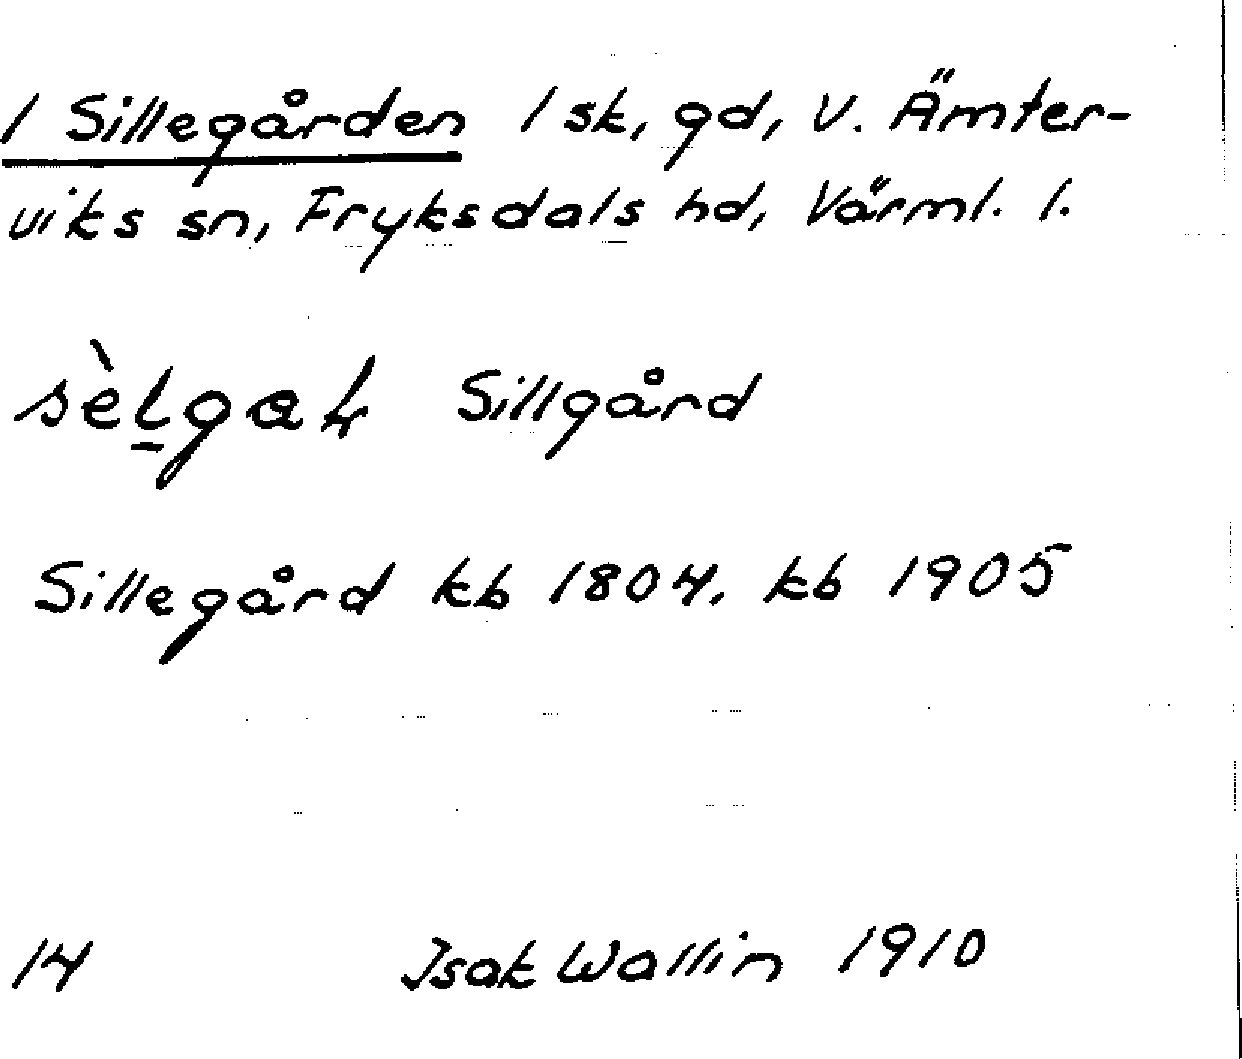 1 Sillegården 1 sk, gd, V. Ämter-
viks sn, Fryksdals hd, Värml. l.
Sillgård
Sillegård kb 1804, kb 1905
14 Isak Wallin 1910